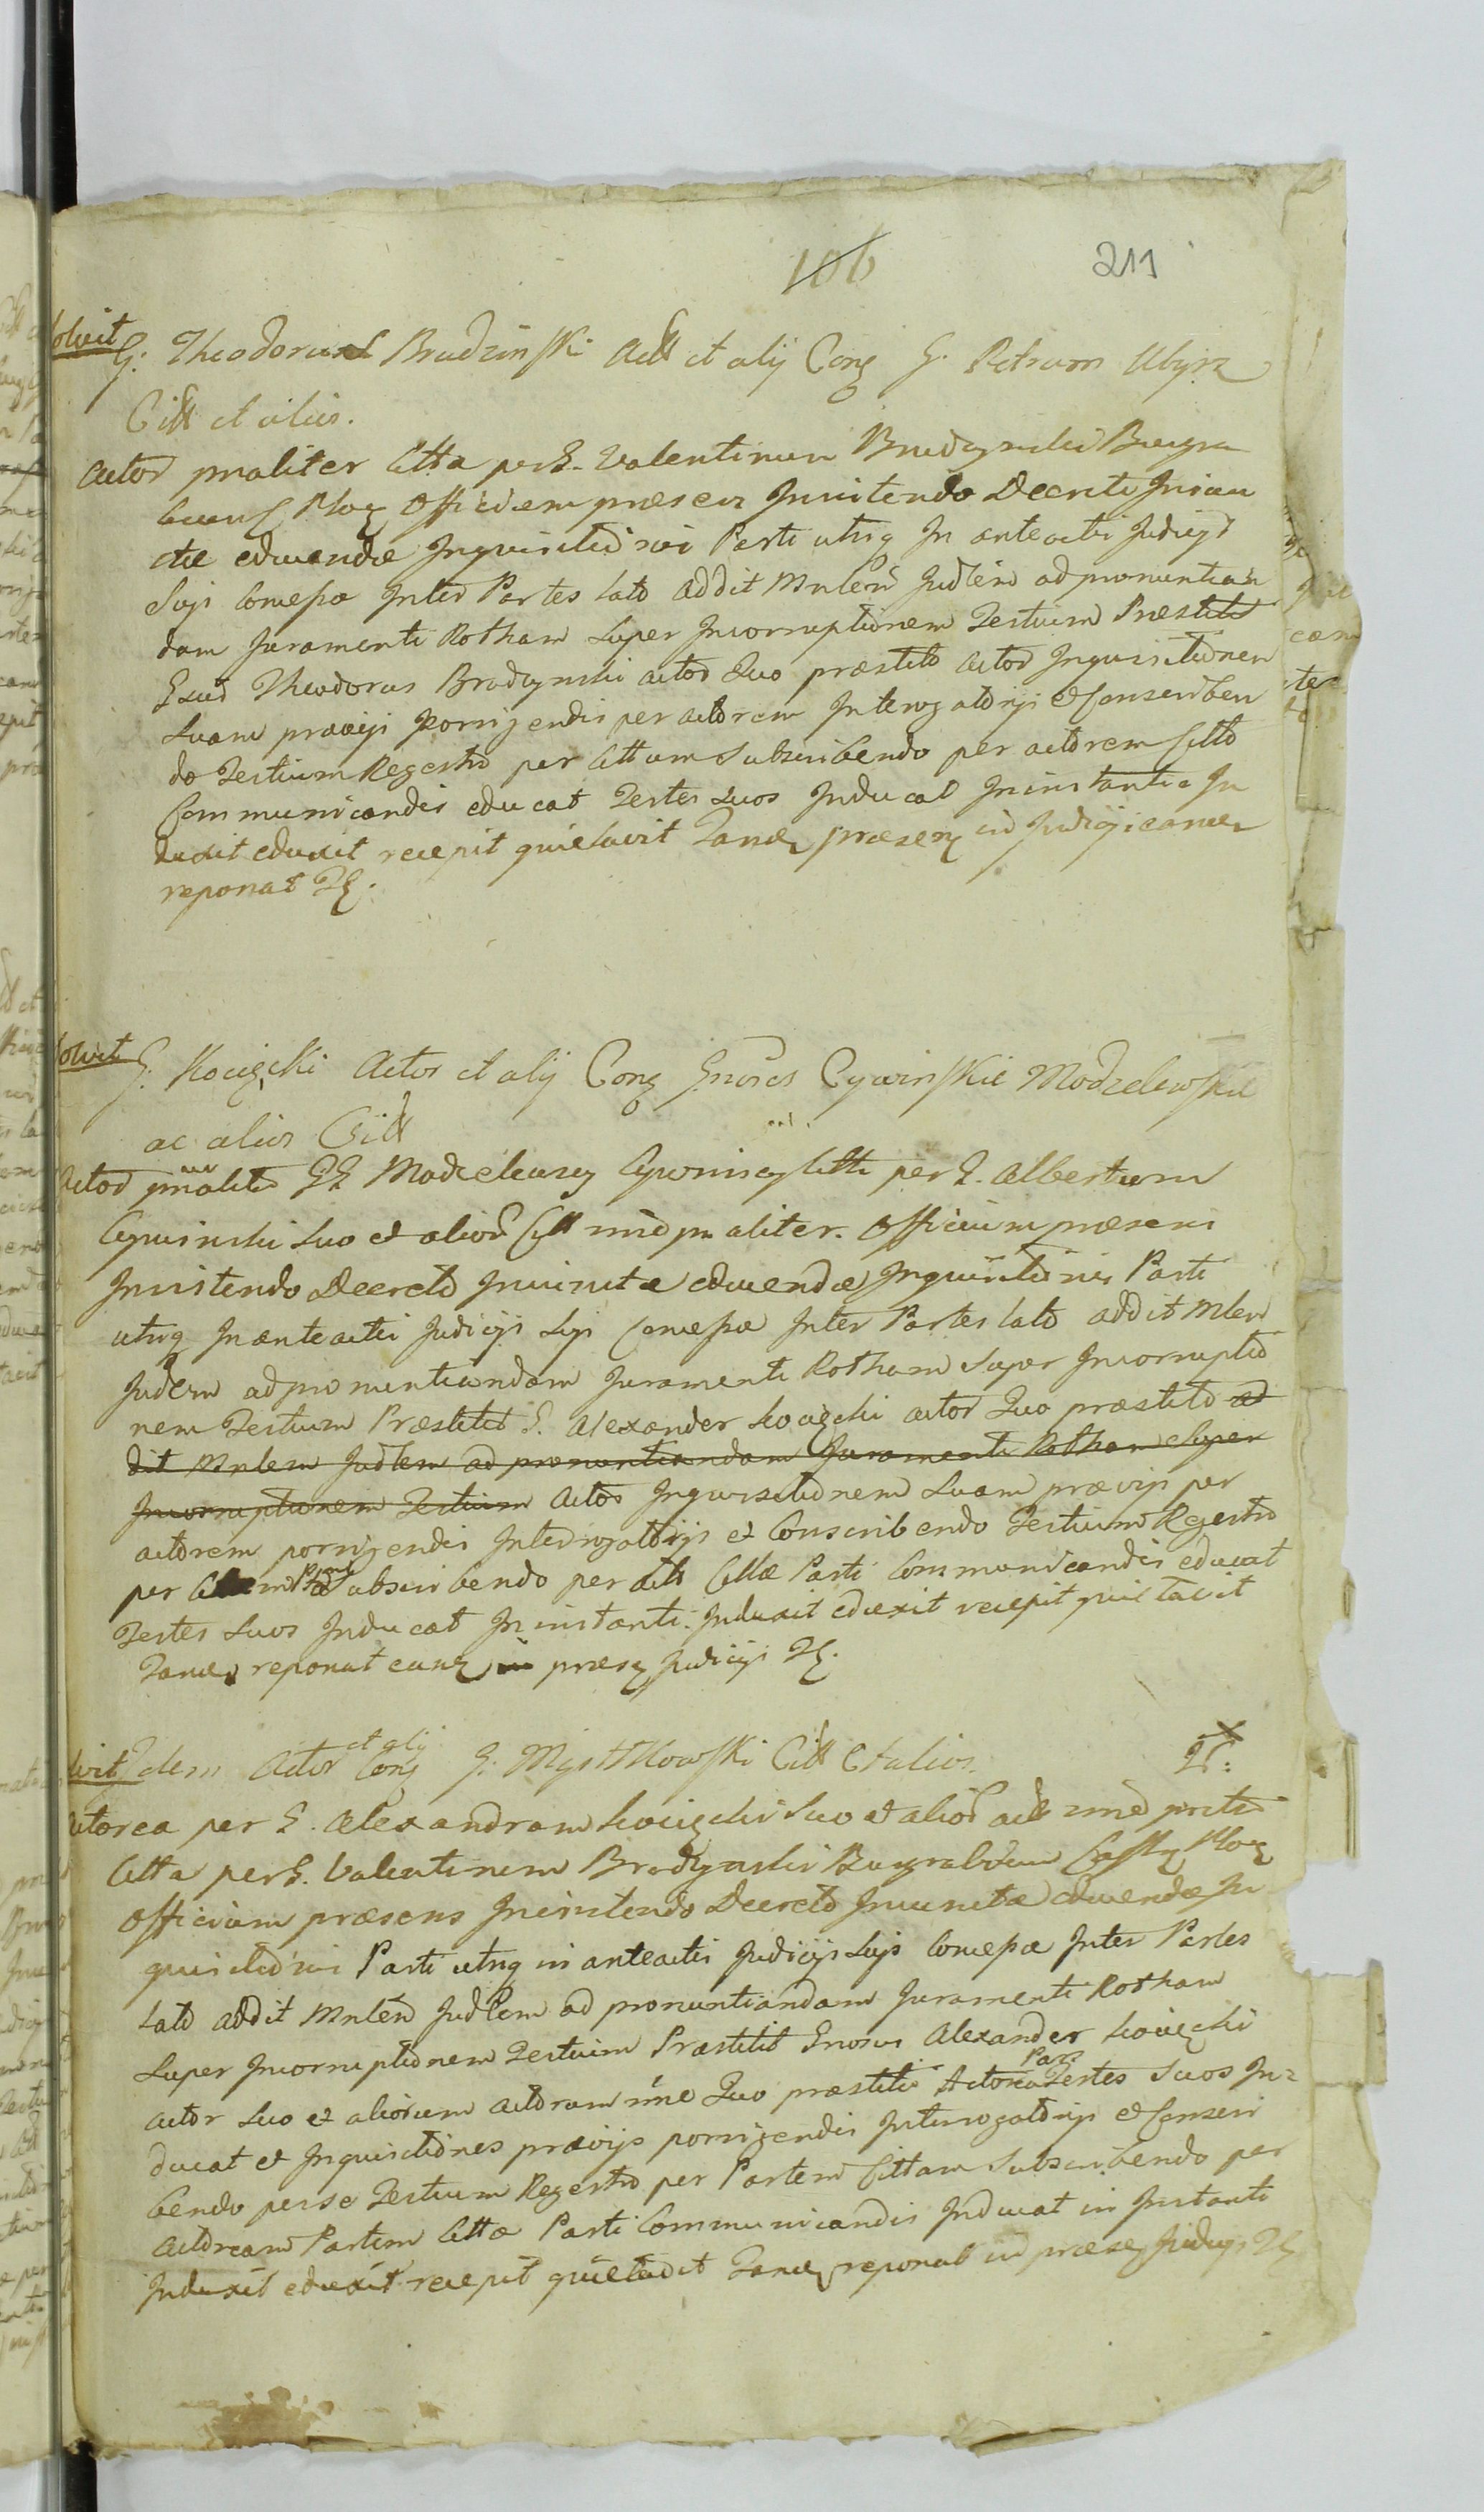 106
211
solvit G. Theodorus Brudzinski Act et alij Cong G. Petrum Ubysz
Citt et alios.
Actor pnaliter Citta per G. Valentinum Brudzynski Burgra
Ploc Officium præsens Innitendo Decreto Iniun
ctæ educendæ Inquisitionis Parti utrīq In anteactis Judicijs
Suis concessæ Inter Partes lato addit Mnlem Judlem ad pronuntian
dam Juramenti Rotham super Incorruptionem Testium Præstitit
Theodorus Brudzynski actor Quo præstito actor Inquisitionem
Suam prævijs porrigendis per actorem Interogatorijs et Conscriben
do Testium Regestro per Cittum subscribendo per actorem Citto
Communicandis educat Testes Suos Inducat In instanti In
duxit eduxit recepit quietavit Tandem præsen in Judicijs eamq
reponat
solvit G. Kocięcki Actor et alij Cong Gnosos Cywinskie Modzelewskie
ac alios Citt
Actor pnaliter GG Modzelewscy Cywinscy Citti per G. Albertum
Cywinski suo et alior Citt nne pnaliter. Officium præsens
Innitendo Decreto Iniunctæ educendæ Inquisitionis Parti
utrīq In anteactis Judicijs Suis concessæ Inter Partes lato addit Mlem
Judlem ad pronuntiandam Juramenti Rotham super Incorruptio
nem Testium Præstitit G. Alexander Kocięcki actor Quo præstito ad
dit Mnlem Judlem ad pronuntiandam Juramenti Rotham Super
Incorruptionem Testium Actor Inquisitionem Suam prævijs per
actorem porrigendis Interrogatorijs et Conscribendo Testium Regestro
per subscribendo per act Cittæ Parti Communicandis educat
Testes Suos Inducat In instanti. Induxit eduxit recepit quietavit
Tandem reponat eamq in præsen Judicijs
solvit Idem Actor et alij Cong G. Mystkowski Citt et alios.
Actorea per G. Alexandrum Kocięcki suo et alior act nne
Citta per G. Valentinum Brudzynski Burgrabium Castr Ploc
Officium præsens Innitendo Decreto Iniunctæ educendæ In
quisitionis Parti utrīq in anteactis Judicijs Suis Concessæ Inter Partes
lato addit Mnlem Judlem ad pronuntiandam Juramenti Rotham
super Incorruptionem Testium Præstitit Gnosus Alexander Kocięcki
actor suo et aliorum actorum nne Quo præstito Actorea Pars Testes Suos In=
ducat et Inquisitiones prævijs porrigendis Interrogatorijs et Conscri
bendo per se Testium Regestro per Partem Cittam Subscribendo per
Actoream Partem Cittæ Parti Communicandis Inducat in Instanti
Induxit eduxit recepit quietavit Tandem reponat in præsen Judicijs